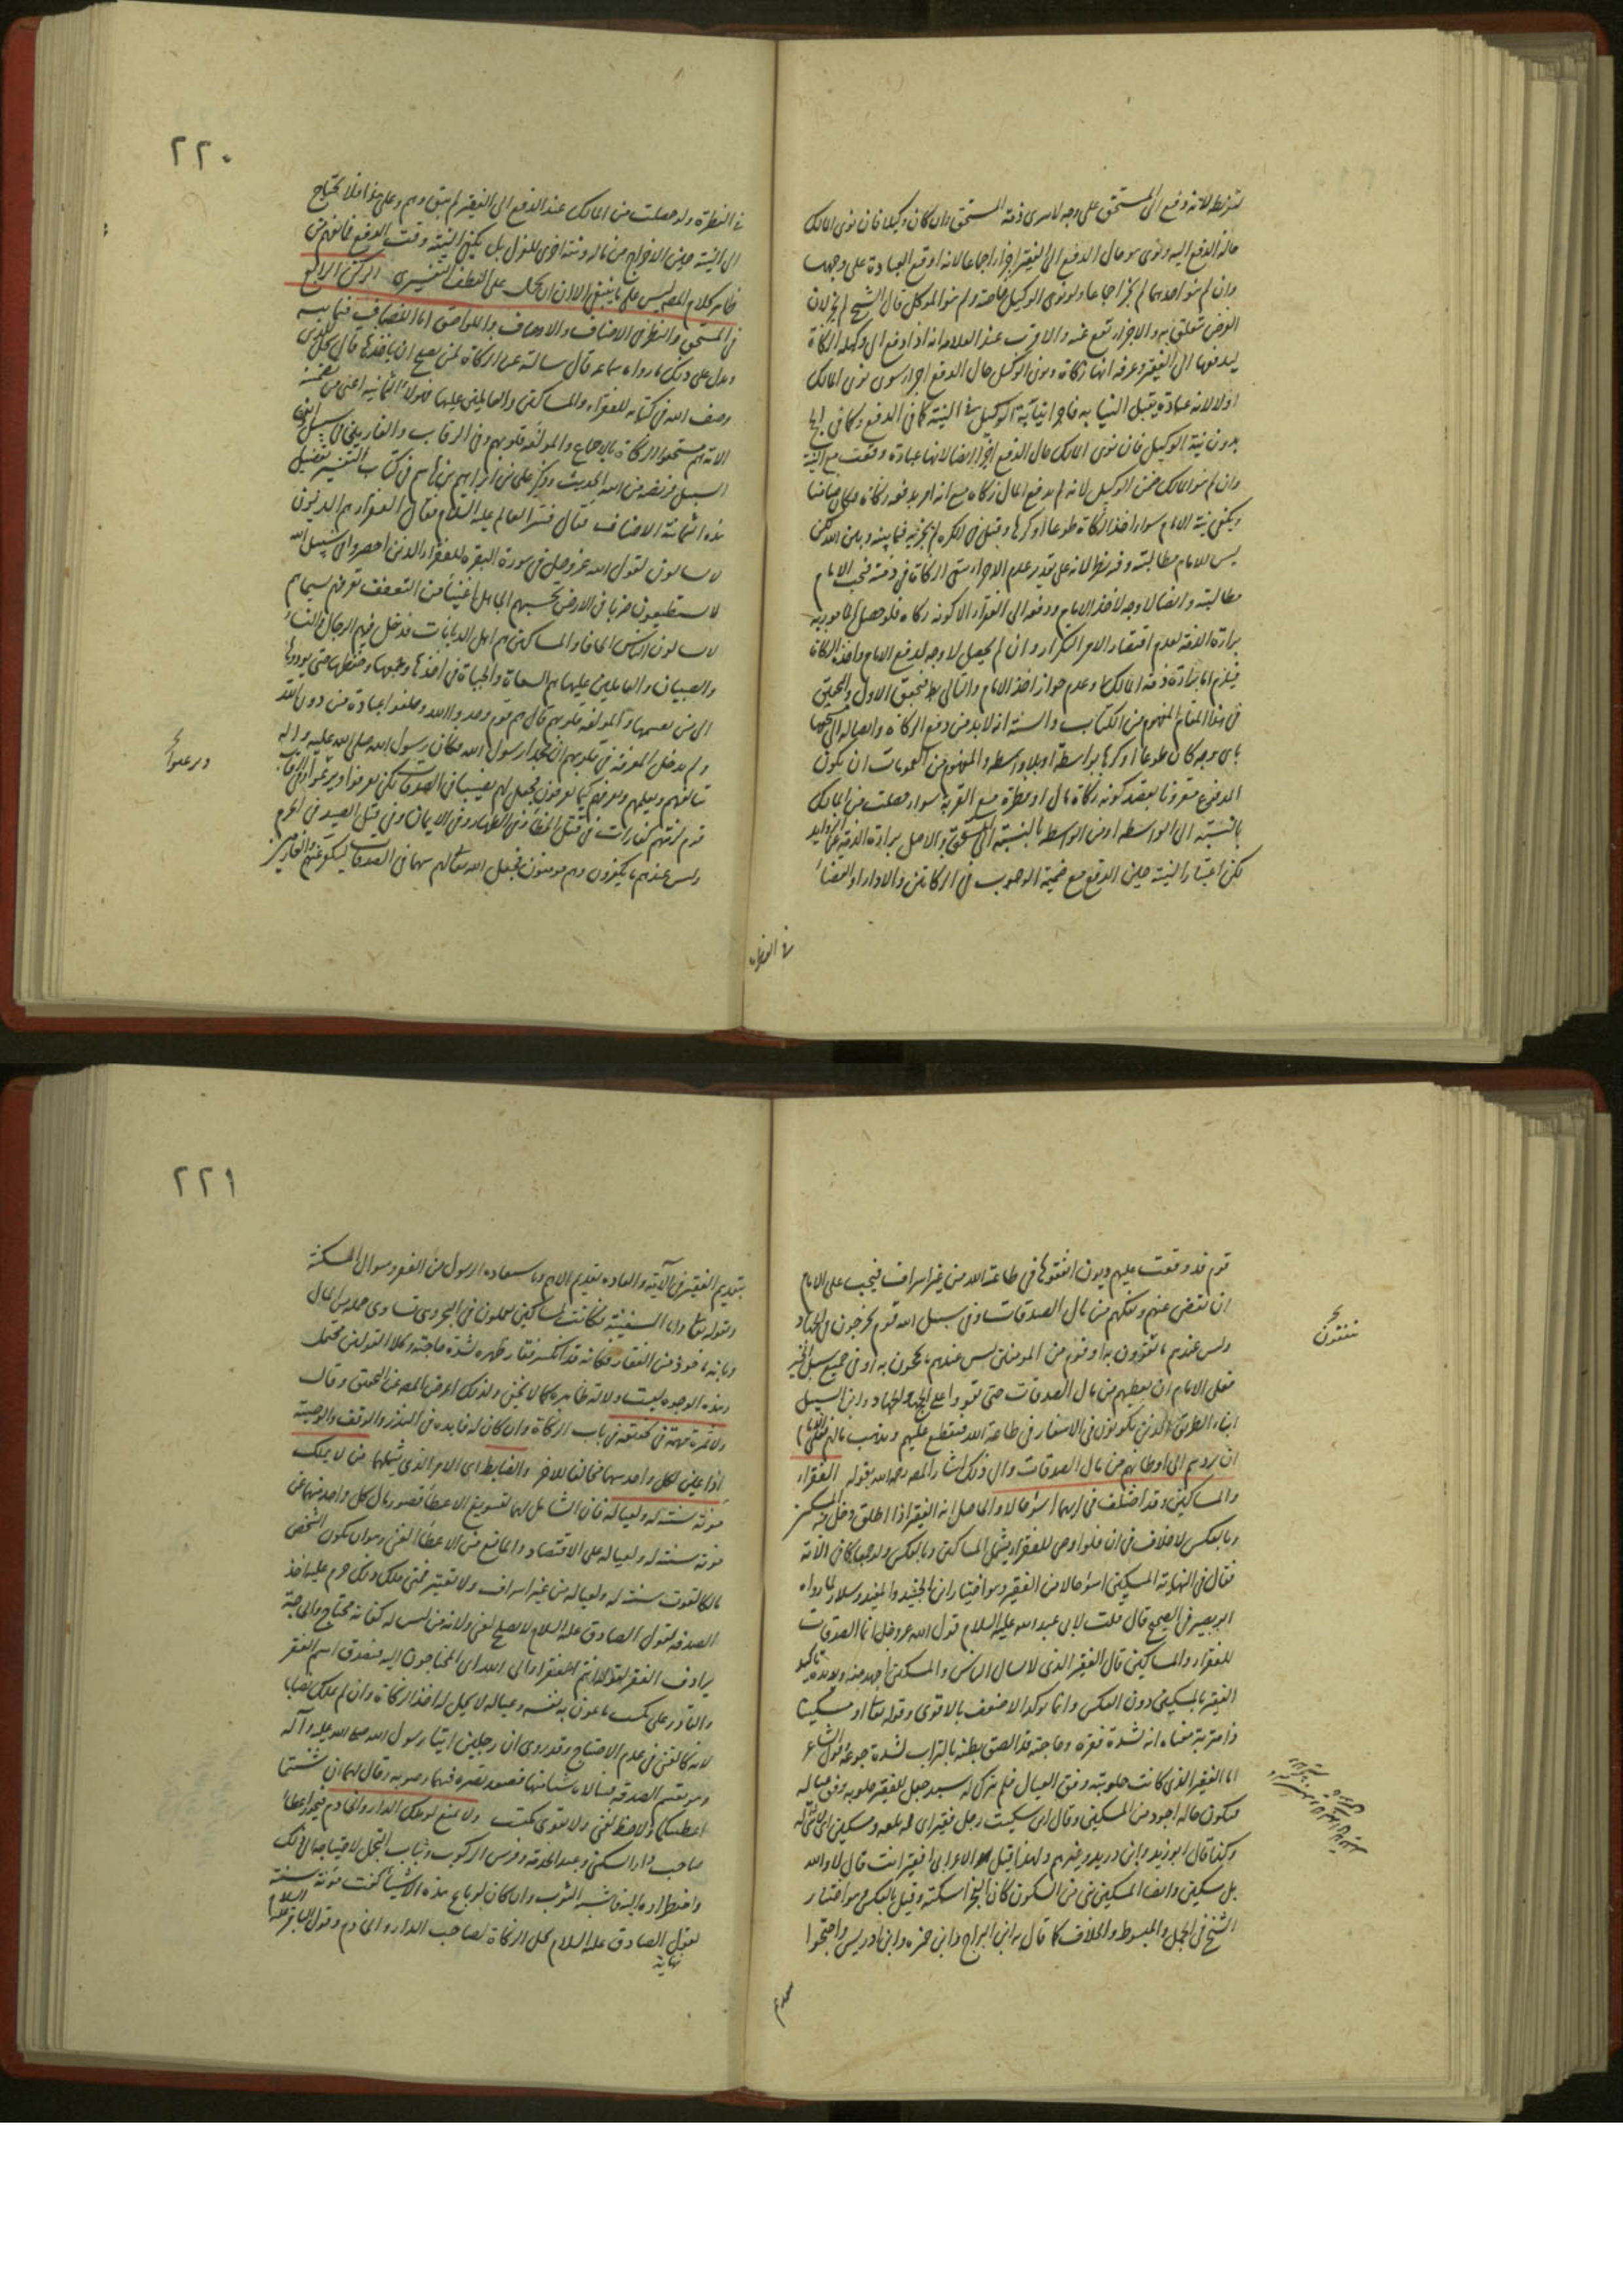 لاشتراطه لانه دفع الى المستحق على وجه لا يبرى ذمة المستحق وان كان وكيلا فان نوى المالك
حالة الدفع اليه ونوى هو حال الدفع الى الفقير اجزأ اجماعا لانه اوقع العبادة على وجهها
وان لم ينو احدهما لم يجز اجماعا ولو نوى الوكيل خاصة ولم ينو الموكل قال الشيخ لم يجز لان
الفرض تعلق به والاجزاء يقع عنه والاقرب عند العلامه انه اذا دفع الى وكيله الزكاة
ليدفعها الى الفقير وعرفه انها زكاة ونوى الوكيل حال الدفع اجزأ سوى نوى المالك
اولا لانه عبادة يقبل النيابه فاجزأ نيابة الوكيل في النية كما في الدفع وكما في الحج
بدون نية الوكيل فان نوى المالك حال الدفع اجزأ ايضا لانها عبادة وقعت مع النية
وان لم ينو المالك ضمن الوكيل لانه لم يدفع المال زكاه مع انه امر بدفعه زكاة وكان ضامنا
ويكفي نية الامام سواء اخذ الزكاة طوعا او كرها وقيل في الكره لم يجزئه فيما بينه وبين الله لكن
ليس للامام مطالبته وفيه نظر لانه على تقدير عدم الاجزاء بقي الزكاة في ذمته فيجب الامام
مطالبته وايضا لا وجه لاخذ الامام ودفعه الى الفقراء الا كونه زكاه فلو حصل المأمور به
براءة الذمة لعدم اقتضاء الامر التكرار وان لم يحصل لا وجه لدفع الامام واخذه الزكاة
فيلزم اما براءة ذمة المالك او عدم جواز اخذ الامام والتالى بط فيتحقق الاول والتحقيق
في هذا المقام المفهوم من الكتاب والسنة انه لا بد من دفع الزكاة وايصاله الى مستحقها
باى وجه كان طوعا او كرها بواسطة او بلا واسطه والمفهوم من العمومات ان يكون
المدفوع مقرونا بقصد كونه زكاة مال او فطرة مع القربة سواء حصلت من المالك
بالنسبة الى الواسطه او من الواسطه بالنسبة الى المستحق والاصل براءة الذمة عن الزوايد
لكن اعتبار النية حين الدفع مع ضمية الوجوب في الزكاتين والاداء او القضاء
في الفطره
٢٢٠
في الفطرة ولو حصلت من المالك عند الدفع الى الفقير لم يبق وهم وعلى هذا فلا يحتاج
الى النية حين الاخراج من ماله ونية اخرى للعزل بل يكفي النية وقت الدفع فافهم من
ظاهر كلام المصه ليس على ما ينبغي الا ان يحمل على العطف التفسيرى الركن الرابع
في المستحق والنظر في الاصناف والاوصاف واللواحق اما الاصناف فثمانيه
ويدل على ذلك ما رواه سماعه قال سالته عن الزكاة لمن يصلح ان ياخذها قال هى للذين
وصف الله في كتابه للفقراء والمساكين والعاملين عليها فهؤلاء الثمانيه اعنى من تضمنه
الاية هم مستحقوا الزكاة بالاجماع والمؤلفه قلوبهم وفى الرقاب والغارمين وفى سبيل الله وابن
السبيل فريضه من الله الحديث وذكر على بن ابراهيم بن هاشم في كتاب التفسير تفضيل
هذه الثمانية الاصناف فقال فسر العالم عليه السلام فقال الفقراء هم الذين
لا يسالون لقول الله عز وجل في سورة البقره للفقراء الذين احصروا في سبيل الله
لا يستطيعون ضربا في الارض يحسبهم الجاهل اغنياء من التعفف تعرفهم بسيماهم
لا يسالون الناس الحافا والمساكين هم اهل الديانات قد دخل فيهم الرجال والنساء
والصبيان والعاملين عليها هم السعاة والجباة في اخذها وجمعها وحفظها حتى يؤدوها
الى من يقسمها والمؤلفه قلوبهم قال هم قوم وحدوا الله وخلعوا عبادة من دون الله
ولم يدخل المعرفة في قلوبهم ان محمدا رسول الله فكان رسول الله صلى الله عليه واله
يتالفهم ويعلمهم ويعرفهم كيما يعرفون فجعل لهم نصيبا في الصدقات لكى يعرفوا ويرغبوا وفى الرقاب
قوم لزمتهم كفارات في قتل الخطا وفى الظهار وفى الايمان وفى قتل الصيد في الحرم
وليس عندهم ما يكفرون وهم مومنون فجعل الله تعالى لهم سهما في الصدقات ليكفر عنهم والغارمين
ويرغبوا خ
قوم قد وقعت عليهم ديون انفقوها في طاعة الله من غير اسراف فيجب على الامام
ان يقضى عنهم ويفكهم من مال الصدقات وفى سبيل الله قوم يخرجون في الجهاد
وليس عندهم ما يتقوون به او قوم من المومنين ليس عندهم ما يحجون به او في جميع سبل الخير
فعلى الامام ان يعطيهم من مال الصدقات حتى يقووا على الحج والجهاد وابن السبيل
ابناء الطريق الذين يكونون في الاسفار في طاعة الله فيقطع عليهم ويذهب مالهم فعلى الامام
ان يردهم الى اوطانهم من مال الصدقات والى ذلك اشار المصه رحمه الله بقوله الفقراء
والمساكين وقد اختلف في ايهما اسؤ حالا والحاصل ان الفقير اذا اطلق دخل فيه المسكين
وبالعكس لا خلاف في ان فلو اوصى للفقراء يشمل المساكين وبالعكس ولو جمعا كما في الاية
فقال في النهاية المسكين اسؤ حالا من الفقير وهو اختيار ابن الجنيد والمفيد وسلار لما رواه
ابو بصير في الصحيح قال قلت لابى عبد الله عليه السلام قول الله عز وجل انما الصدقات
للفقراء والمساكين قال الفقير الذى لا يسال الناس والمسكين اجهد منه ولانه تاكيد
الفقير بالمسكين دون العكس وانما يوكد الاضعف بالاقوى وقوله تعالى او مسكينا
ذا متربة معناه انه لشدة فقره وحاجته قد الصق بطنه بالتراب لشدة جوعه وقول الشاعر
اما الفقير الذى كانت حلوبته وفق العيال فلم يترك له سبد جعل للفقير حلوبه وفق عياله
فيكون حاله اجود من المسكين وقال ابن سكيت رجل فقير اى له بلغه ومسكين اى لا شئ له
وكذا قال ابو زيد وابن دريد وغيرهم ولهذا قيل الاعرابى افقير انت قال لا والله
بل مسكين وايضا المسكين مبنى من السكون كان العجز اسكنه وقيل بالعكس وهو اختيار
الشيخ في الجمل والمبسوط والخلاف كما قال به ابن البراج وابن حمزه وابن ادريس واحتجوا
ينفقون خ
٢٢١
بتقديم الفقير في الآية والعاده تقديم الاهم وباستعاذة الرسول من الفقر وسوال المسكنة
وقوله تعالى واما السفينة فكانت لمساكين يعملون في البحر وهى تساوى جمله من المال
وبانه ماخوذ من الفقار فكانه قد انكسر فقار ظهره لشدة حاجته وكلا القولين محتمل
وهذه الوجوه ليست دلالة ظاهره كما لا يخفى ولذلك اعرض المصه عن التحقيق وقال
ولا ثمرة مهمة في تحقيقه في باب الزكاة وان كان له فايده في النذر والوقف والوصية
اذا عين لكل واحد سهما مخالفا للاخر والضابط اى الامر الذى يشملهما من لا يملك
مونة سنته له ولعياله فان الشامل لهما لتسويغ الاعطاء قصور مال كل واحد منهما عن
مونة سنته له ولعياله على الاقتصاد والمانع من الاعطاء الغنى وهو ان يكون الشخص
مالكا لقوت سنته له ولعياله من غير اسراف ولا تقتير فمتى ملك ذلك حرم عليه اخذ
الصدقه لقول الصادق عليه السلام لا يصلح لغنى ولانه من ليس له كفاية محتاج والحاجة
يرادف الفقر لقوله انتم الفقراء الى الله اى المحتاجون اليه فيصدق اسم الفقر
والقادر على تكسب ما يمون به نفسه وعياله لا يحل له اخذ الزكاة وان لم يملك نصابا
لانه كالغنى في عدم الاحتياج وقد روى ان رجلين اتيا رسول الله صلى الله عليه وآله
وهو يقسم الصدقه فسالاه شيئا منها فصعد بصره فيهما وصوبه وقال لهما ان شئتما
اعطيتكما ولا حظ لغنى ولا لقوى مكتسب ولا يمنع لو ملك الدار والخادم فيجوز اعطاء
صاحب دار السكنى وعبد الخدمة وفرس الركوب وثياب التجمل لاحتياجه الى ذلك
واضطراره بالينه فاشبه الثوب وان كان لو باع هذه الاشياء كفت مؤنة سنته
لقول الصادق عليه السلام تحل الزكاة لصاحب الدار والخادم وقول الباقر عليه السلام